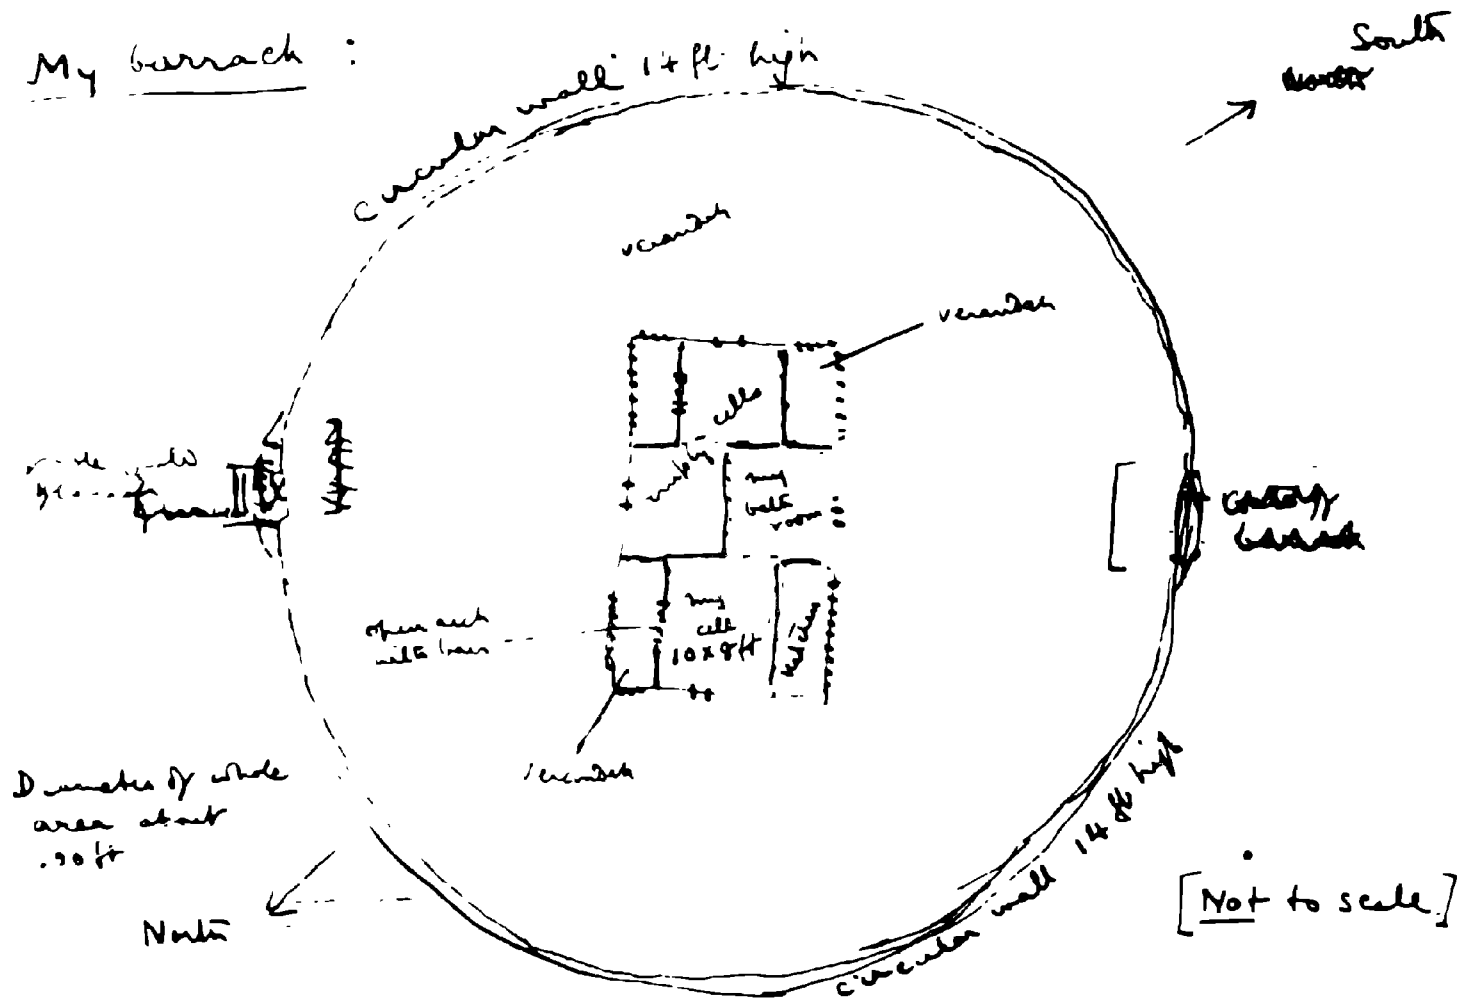 My barrack :
circular wall 14 ft high
South
verandah
verandah
cells
my
bath
room
open arch
with bars
my
cell
10 x 8 ft
Kitchen
verandah
Diameter of whole
area about
90 ft
North
circular wall 14 ft high
[Not to scale]